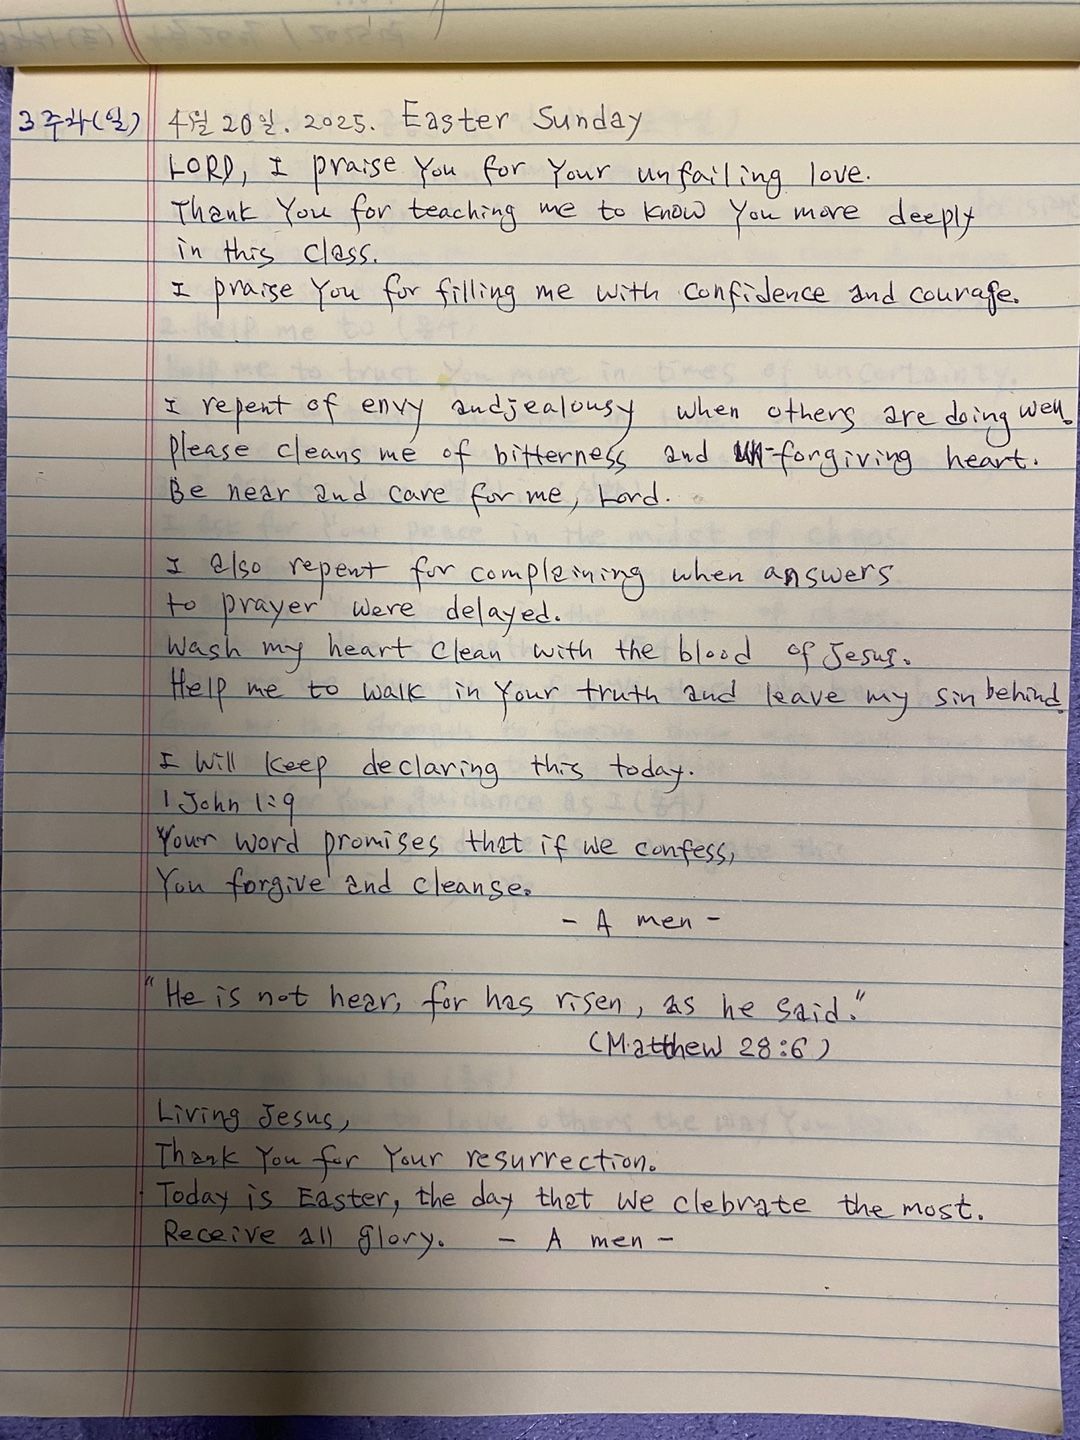 3주차(일) 4월 20일. 2025. Easter Sunday
LORD, I praise You for Your unfailing love.
Thank You for teaching me to know You more deeply
in this class.
I praise You for filling me with confidence and courage.
I repent of envy and jealousy when others are doing well.
Please cleans me of bitterness and un-forgiving heart.
Be near and care for me, Lord.
I also repent for complaining when answers
to prayer were delayed.
Wash my heart clean with the blood of Jesus.
Help me to walk in Your truth and leave my sin behind.
I will keep declaring this today.
1 John 1:9
Your word promises that if we confess,
You forgive and cleanse.
- A men -
"He is not hear, for has risen, as he said."
(Matthew 28:6)
Living Jesus,
Thank You for Your resurrection.
Today is Easter, the day that we clebrate the most.
Receive all glory. - A men -